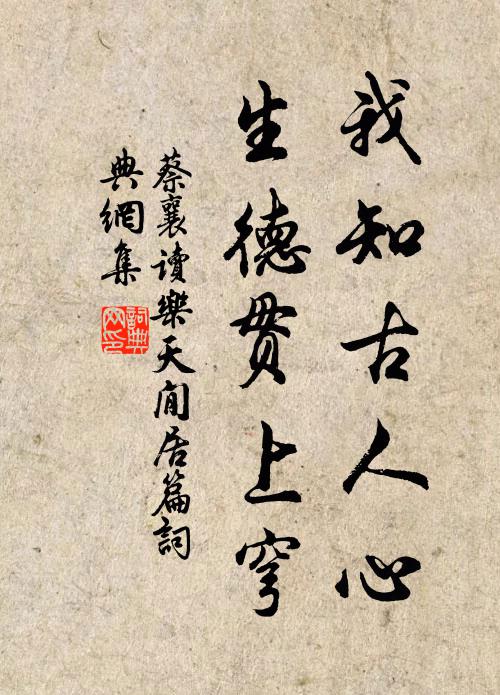 我知古人心
生德贯上穹
蔡襄读樂天閒居篇詞
典網集
詞典
网印